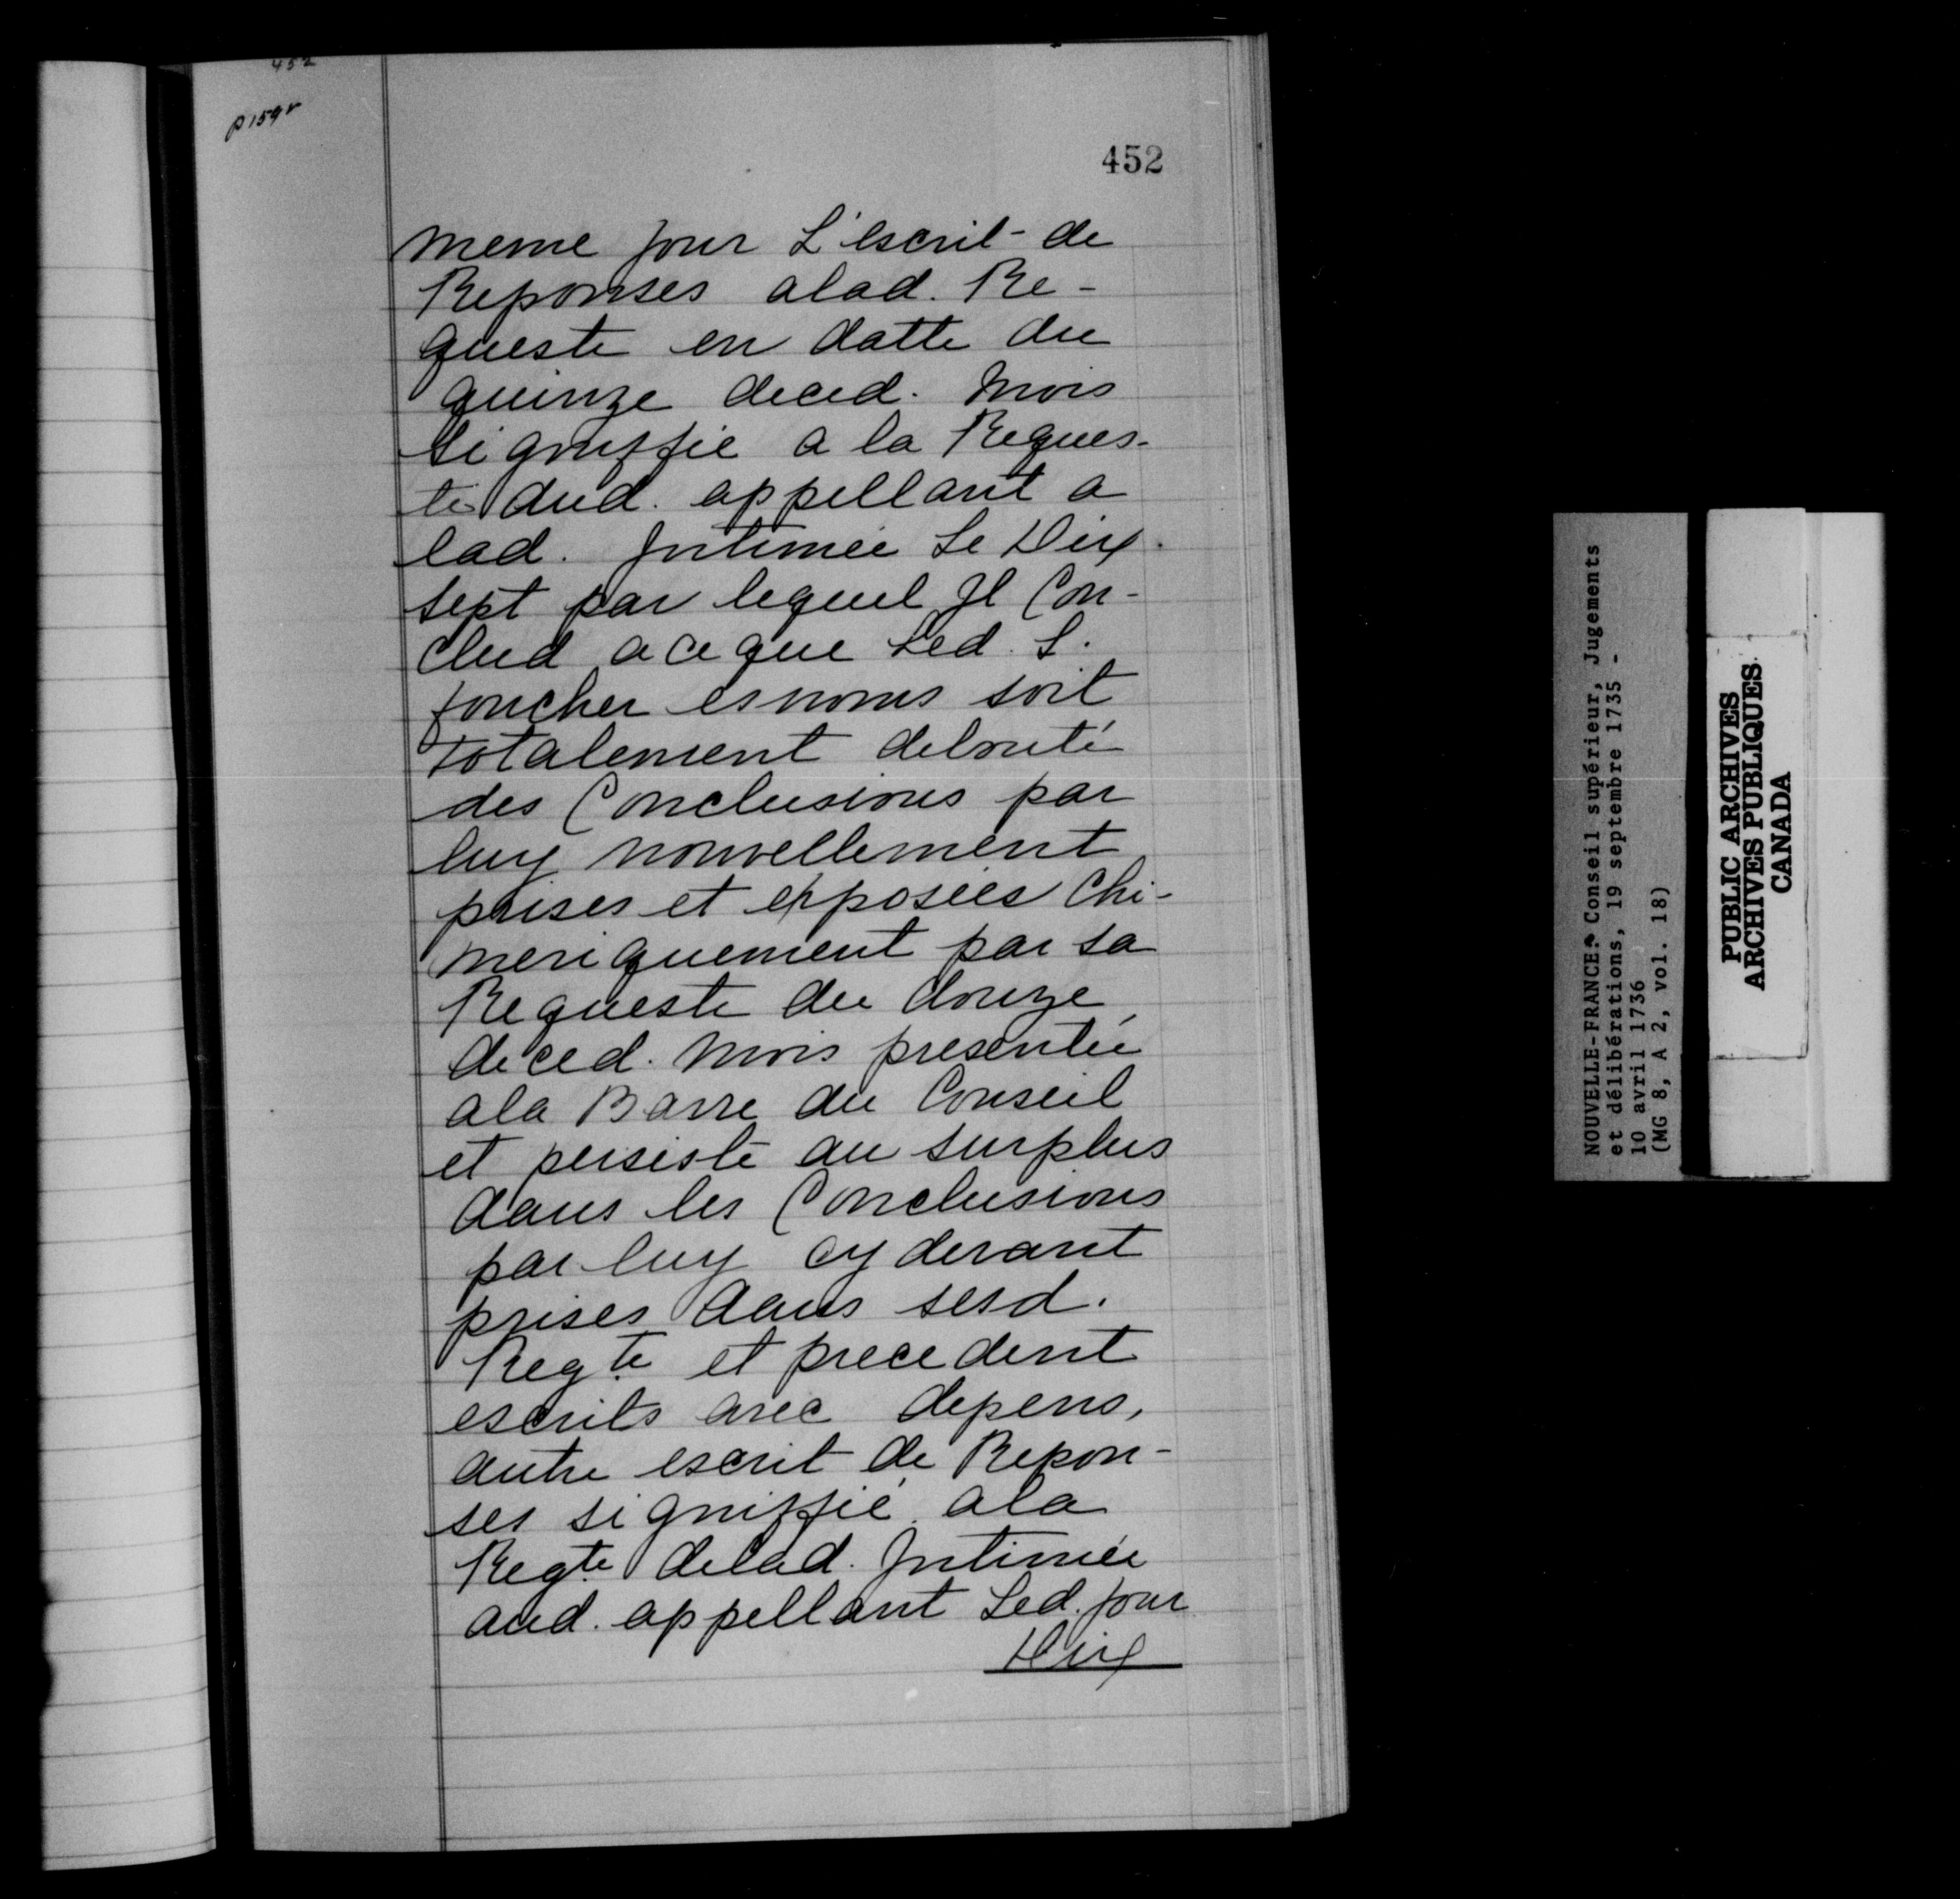 452
p 159 v
452
meme jour L'escrit de
Reponses alad. Re-
queste en datte du
quinze deced. mois
signiffié a la Reques-
te dud. appellant a
lad. Jntimée Le Dix
sept par lequel Jl Con-
clud aceque Led. S.
foucher esnoms soit
totalement debouté
des Conclusions par
luy nouvellement
prises et exposées Chi-
meriquement par sa
Requeste du douze
deced. mois presentée
ala Barre du Conseil
et persiste au surplus
dans les Conclusions
par luy cy devant
prises dans sesd.
Reqte et precedent
escrits avec depens,
autre escrit de Repon-
ses signiffié ala
Reqte delad. Jntimée
aud. appellant Led. jour
Dix
NOUVELLE-FRANCE. Conseil supérieur, Jugements
et délibérations, 19 septembre 1735 -
10 avril 1736
(MG 8, A 2, vol. 18)
PUBLIC ARCHIVES
ARCHIVES PUBLIQUES
CANADA